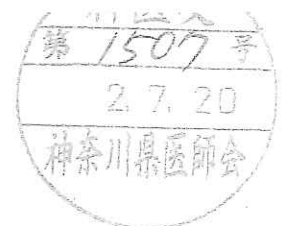 第1507号
2.7.20
神奈川県医師会